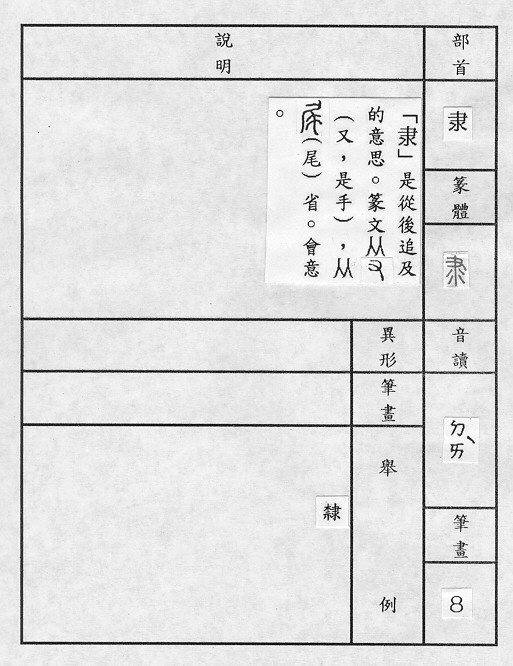 部首
隶
篆體
音讀
ㄉㄞˋ
筆畫
8
說明
「隶」是從後追及
的意思。篆文从
(又,是手),从
(尾)省。會意
。
異形
筆畫
舉例
隸